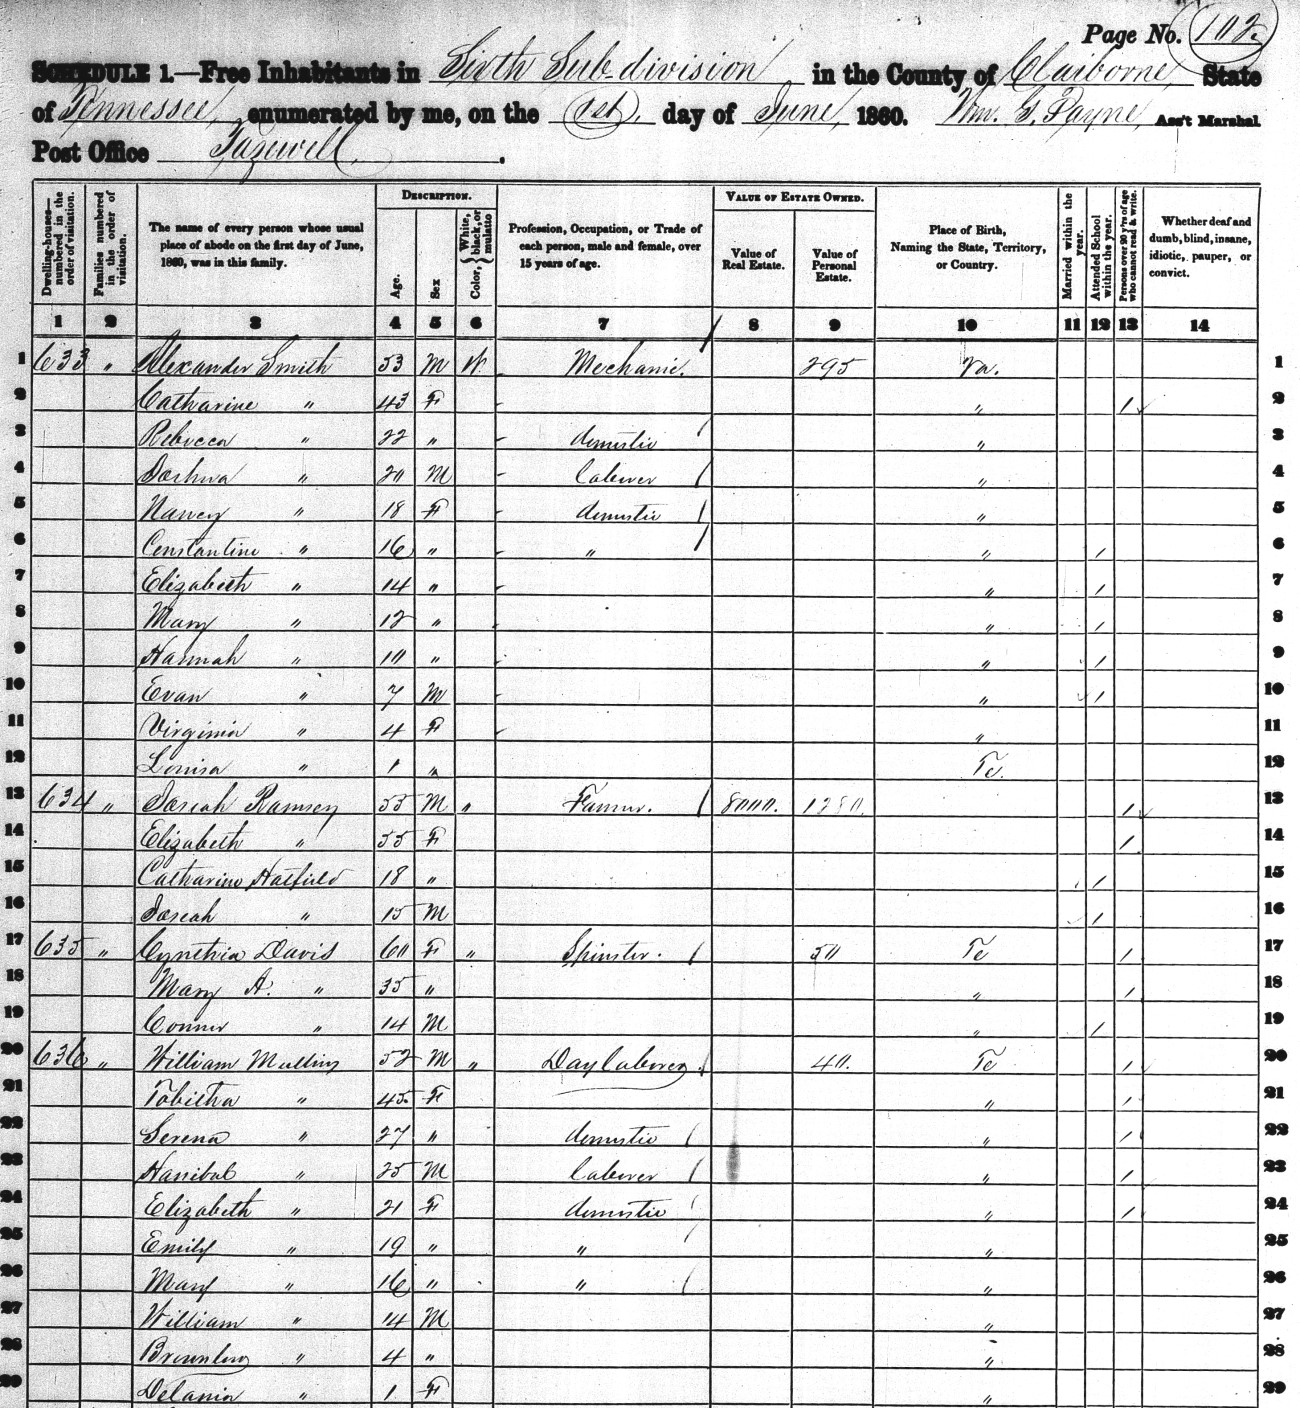 Page No. 102.
SCHEDULE 1.—Free Inhabitants in Sixth Sub-division in the County of Claiborne, State
of Tennessee, enumerated by me, on the 1st. day of June, 1860. Wm. G. Payne, Ass't Marshal
Post Office Tazewell.
Dwelling-houses—numbered in the order of visitation.
Families numbered in the order of visitation.
The name of every person whose usual place of abode on the first day of June, 1860, was in this family.
DESCRIPTION.
Age.
Sex
Color, { White, black, or mulatto
Profession, Occupation, or Trade of each person, male and female, over 15 years of age.
VALUE OF ESTATE OWNED.
Value of Real Estate.
Value of Personal Estate.
Place of Birth, Naming the State, Territory, or Country.
Married within the year.
Attended School within the year.
Persons over 20 y'rs of age who cannot read & write.
Whether deaf and dumb, blind, insane, idiotic, pauper, or convict.
1 2 3 4 5 6 7 8 9 10 11 12 13 14
1 633 " Alexander Smith 53 M W Mechanic. 295 Va. 1
2 Catharine " 43 F " / 2
3 Rebecca " 22 " domestic " 3
4 Joshua " 20 M laborer " 4
5 Nancy " 18 F domestic " 5
6 Constantine " 16 " " " / 6
7 Elizabeth " 14 " " / 7
8 Mary " 12 " " / 8
9 Hannah " 10 " " / 9
10 Evan " 7 M " / 10
11 Virginia " 4 F " 11
12 Louisa " 1 " Te. 12
13 634 " Josiah Ramsey 55 M " Farmer. 8000. 1280. / 13
14 Elizabeth " 55 F / 14
15 Catharine Hatfield 18 " / 15
16 Josiah " 15 M / 16
17 635 " Cynthia Davis 60 F " Spinster. 50 Te / 17
18 Mary A. " 35 " " / 18
19 Conner " 14 M " / 19
20 636 " William Mullins 52 M " Day laborer. 40. Te / 20
21 Tobitha " 45 F " / 21
22 Serena " 27 " domestic " / 22
23 Hanibal " 25 M laborer " / 23
24 Elizabeth " 21 F domestic " / 24
25 Emily " 19 " " " 25
26 Mary " 16 " " " 26
27 William " 14 M " 27
28 " 4 " " 28
29 Delania " 1 F " 29